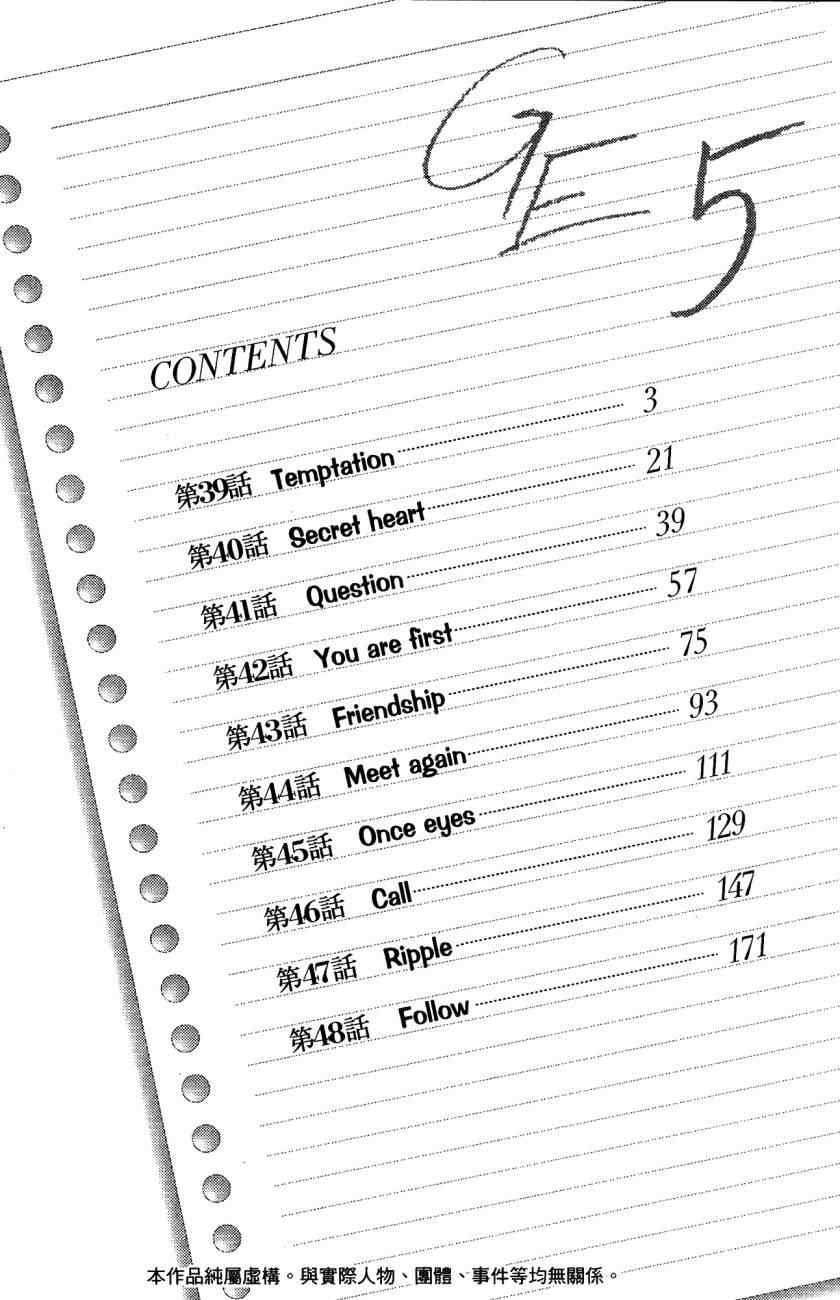 GE 5
CONTENTS
第39話 Temptation 3
第40話 Secret heart 21
第41話 Question 39
第42話 You are first 57
第43話 Friendship 75
第44話 Meet again 93
第45話 Once eyes 111
第46話 Call 129
第47話 Ripple 147
第48話 Follow 171
本作品純屬虛構。與實際人物、團體、事件等均無關係。